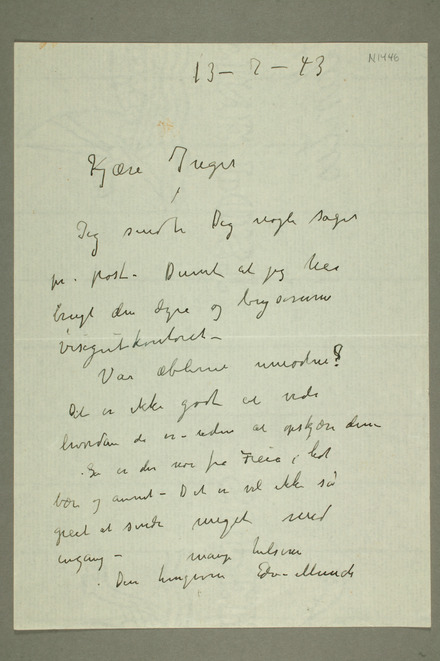 N 1446
13-2-43
Kjære Inger
Jeg sendte Dig nogle sager
pr. post. Dumt at jeg har
brugt den dyre og brysomme
visergutkontoret-
Var æblerne umodne?
Det er ikke godt at vide
hvordan de er - uden at opskjære dem
Så er der noe fra Freia, lidt
bær og annet - Det er vel ikke så
greit at sende meget med
engang - mange hilsener
Din hengivne Edv. Munch